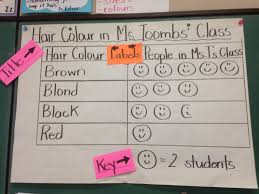 Hair Colour in Ms. Toombs' Class
Title
Hair Colour Labels People in Ms. T's Class
Brown
Blond
Black
Red
Key → = 2 students
colours
Zz